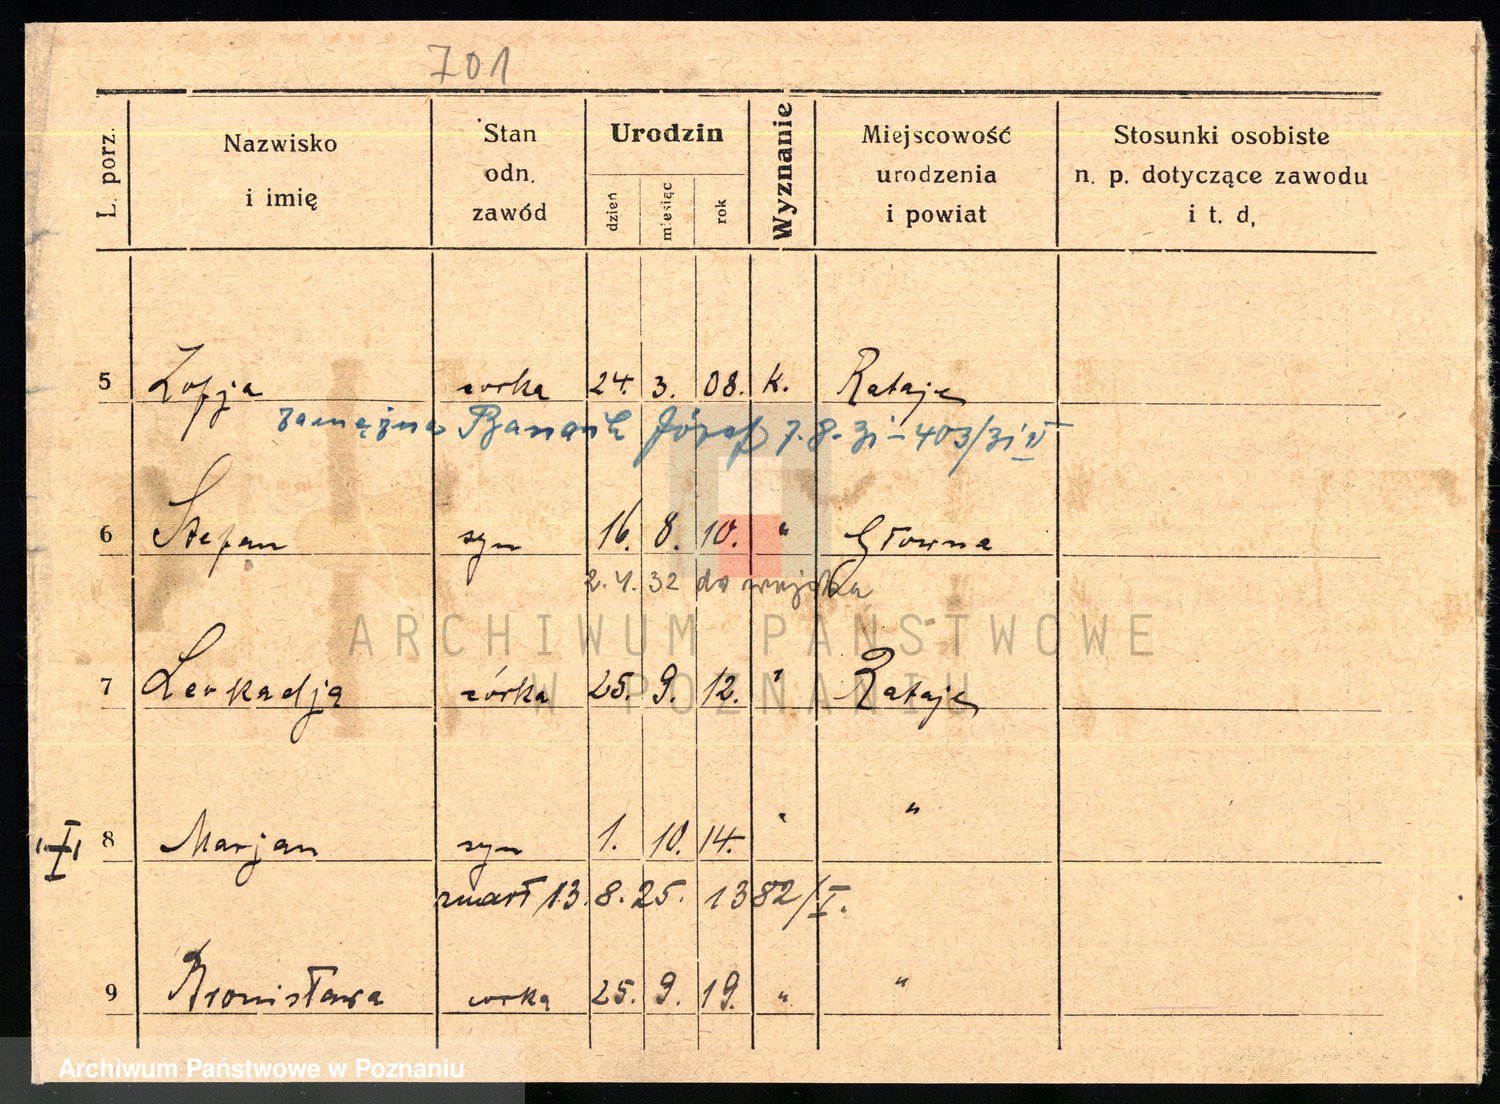 701
L. porz.
Nazwisko
i imię
Stan
odn.
zawód
Urodzin
dzień
miesiąc
rok
Wyznanie
Miejscowość
urodzenia
i powiat
Stosunki osobiste
n. p. dotyczące zawodu
i t. d,
5 Zofja córka 24. 3. 08. k. Rataje
zamężna Józef 7.8.31 - 403/31 V
6 Stefan syn 16. 8. 10. " Główna
2.4.32 do wojska
7 Leokadja córka 25. 9. 12. " Rataje
8 Marjan syn 1. 10. 14. " "
zmarł 13. 8. 25. 1382/I.
9 Bronisława córka 25. 9. 19. " "
ARCHIWUM PAŃSTWOWE
W POZNANIU
Archiwum Państwowe w Poznaniu